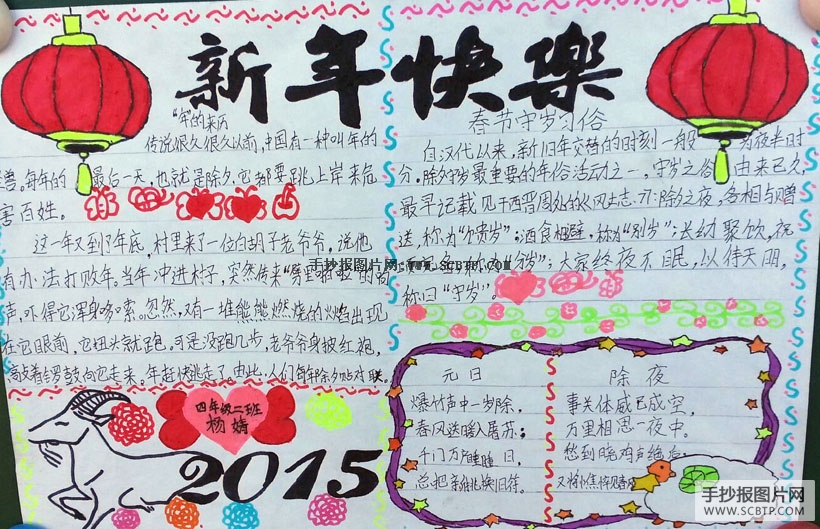 新年快樂
"年"的来历
传说很久很久以前,中国有一种叫年的
兽。每年的最后一天,也就是除夕,它都要跳上岸来危
害百姓。
这一年又到了年底,村里来了一位白胡子老爷爷,说他
有办法打败年。当年冲进村子,突然传来"劈里啪啦"的
声,吓得它浑身哆嗦。忽然,又有一堆熊熊燃烧的火焰出现
在它眼前,它扭头就跑。可是没跑几步,老爷爷身披红袍,
敲着锣鼓向它走来。年赶快逃走了。由此,人们每年除夕贴对联
春节守岁习俗
自汉代以来,新旧年交替的时刻一般为夜半时
分。除夕守岁最重要的年俗活动之一,守岁之俗由来已久,
最早记载见于西晋周处的《风土志》:除夕之夜,各相与赠
送,称为"馈岁";酒食相邀,称为"别岁";长幼聚饮,祝
岁";大家终夜不眠,以待天明,
称曰"守岁"。
元日
爆竹声中一岁除,
春风送暖入屠苏;
千门万户瞳瞳日,
总把新桃换旧符。
除夜
事关休戚已成空,
万里相思一夜中。
愁到晓鸡声绝后,
又将憔悴见春风
四年级二班
杨婧
2015
手抄报图片网:www.SCBTP.com
手抄报图片网
WWW.SCBTP.COM